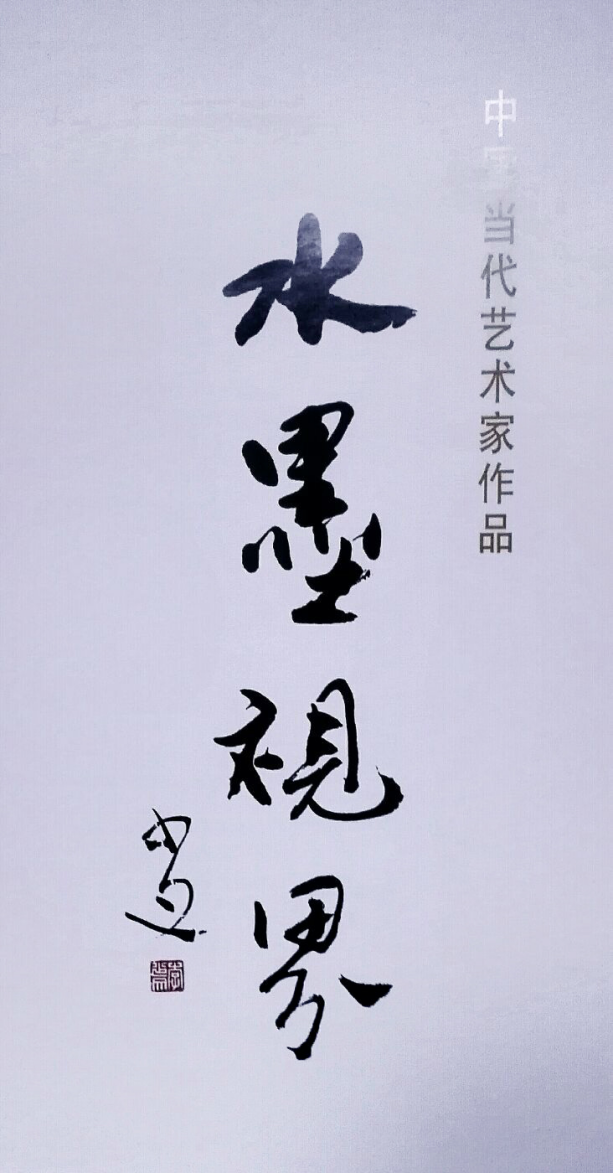 中国当代艺术家作品
水墨視界